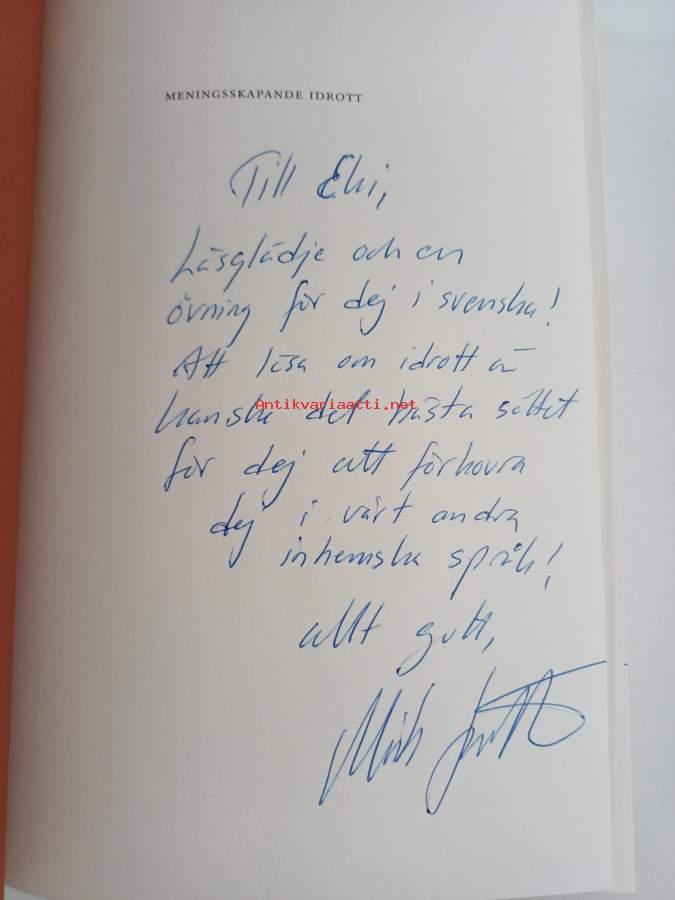 MENINGSSKAPANDE IDROTT
Till Eki,
Läsglädje och en
övning för dej i svenska!
Att läsa om idrott är
kanske det bästa sättet
Antikvariaatti.net
för dej att förkovra
dej i vårt andra
inhemska språk!
allt gott,